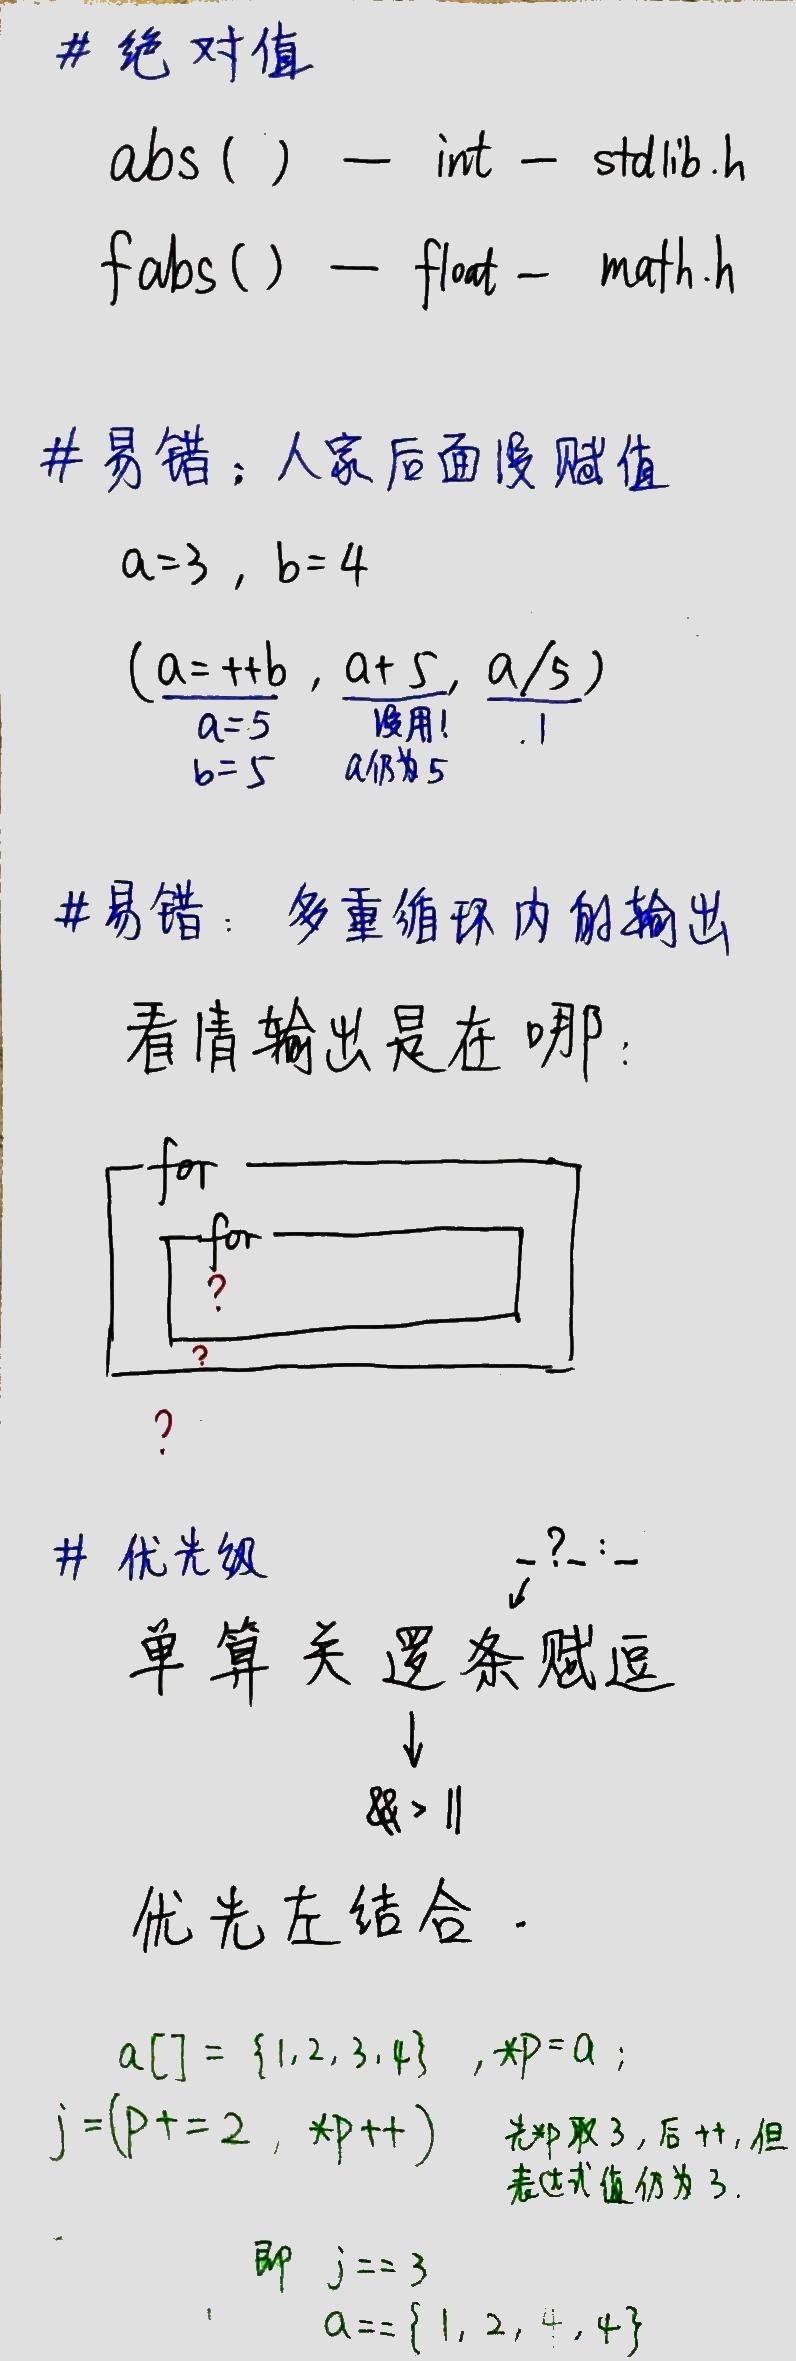 # 绝对值
abs( ) — int — stdlib.h
fabs( ) — float — math.h
# 易错：人家后面没赋值
a=3 , b=4
(a=++b , a+5, a/5)
a=5 没用! 1
b=5 a仍为5
# 易错：多重循环内的输出
看清输出是在哪：
for
for
?
?
?
# 优先级 _?_:_
单算关逻条赋逗
↓
&&>||
优先左结合.
a[]={1,2,3,4} ,*p=a;
j=(p+=2 , *p++) 先*p取3,后++,但
表达式值仍为3.
即 j==3
a=={1,2,4,4}